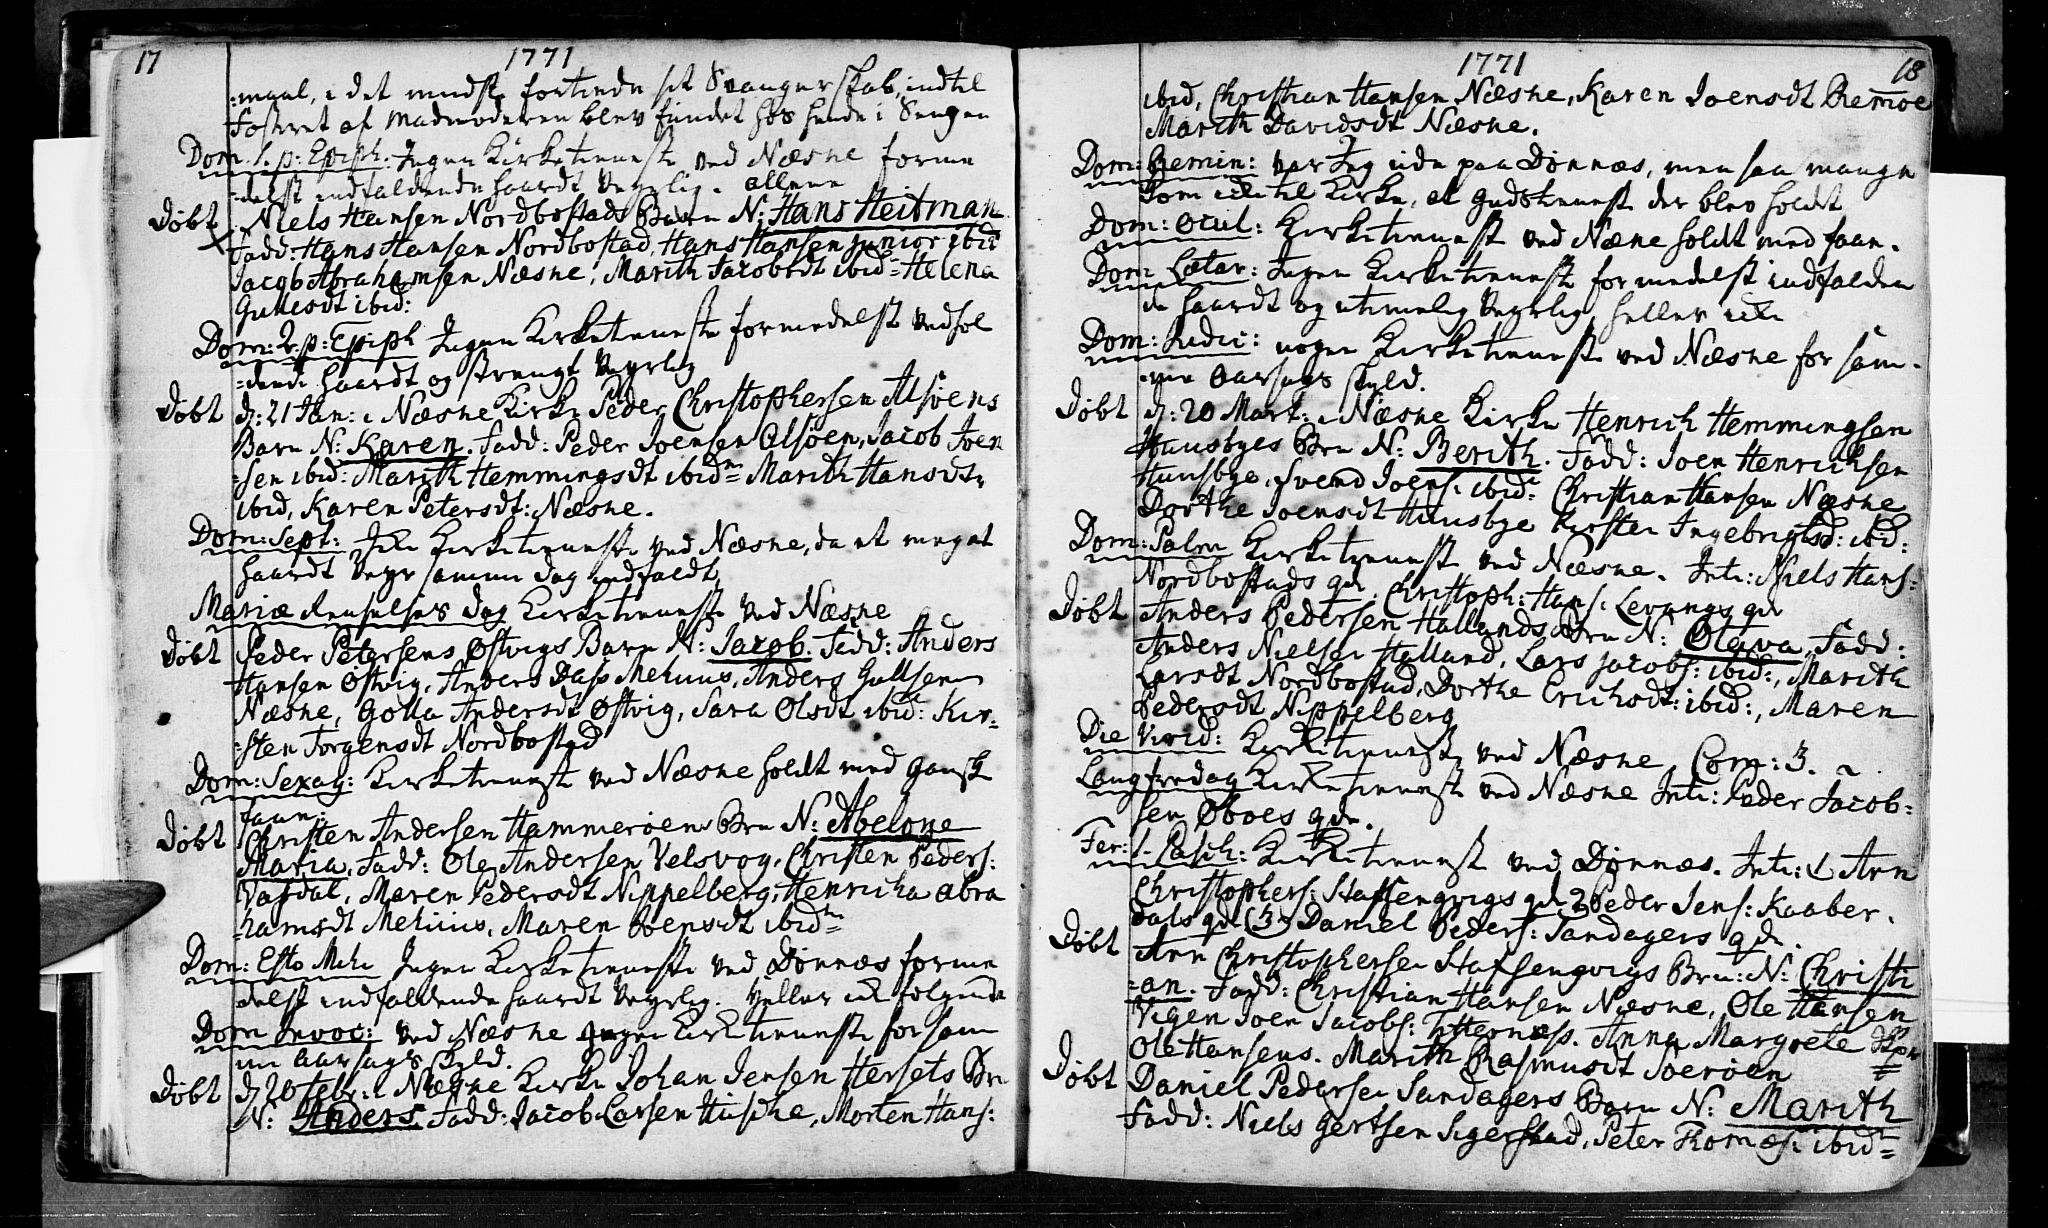 17
1771
-maal, i det mindste fortiede sit Svangerskab, indtil
Fosteret af Madmoderen blev fundet hos hende i Sengen
Dom. 1. p: Epiph: Ingen Kirketieneste ved Næsne forme
-delst indfaldende haardt Veyrlig. allene
Døbt Niels Hansen Nordbostads Barn N: Hans Heitman
Fadd: Hans Hansen Nordbostad, Hans Hansen junior ibid
Jacob Abrahamsen Næsne, Marith Jacobsdt ibid= Helena
Gullesdt ibid:
Dom: 2. p: Epiph Ingen Kirketieneste formedelst vedhol
-dende haardt og strengt Veyrlig
Døbt d: 21 Jan: i Næsne Kirke Peder Christophersen Alsöens
Barn N: Karen. Fadd: Peder Joensen Alsöen, Jacob Joen
-sen ibid: Marith Hemmingsdt ibidm Marith Hansdt
ibid, Karen Petersdt: Næsne.
Dom: Sept: Kirketieneste ved Næsne, da et meget
haardt Veyr samme dag indfaldt
Mariæ Renselses dag Kirketieneste ved Næsne
Døbt Peder Petersens Østvigs Barn N: Jacob. Fadd: Anders
Hansen Østvig, Anders Dass Mehuus, Anders Gullsen
Næsne, Golla Andersdt Østvig, Sara Olsdt ibid: Kir-
-sten Jørgensdt Nordbostad
Dom: Sexag: Kirketieneste ved Næsne holdt med gansk
faan:
Døbt Christen Andersen Hammerøens Brn N: Abelone
Maria. Fadd: Ole Andersen Velsvog, Christen Peders:
Vasdal, Maren Pedersdt Nippelberg, Henricha Abra
-hamsdt Mehuus, Maren ibidm
Dom: Esto Mihi Ingen Kirketieneste ved Dønnæs forme
delst indfaldende haardt Veyrlig. Heller ikke følgende
Dom Invoc: ved Næsne Kirketieneste for sam
me Aarsags Skyld.
Døbt d: 20 Febr: i Næsne Kirke Johan Jensen Hersets Brn
N: Anders. Fadd: Jacob Larsen Husbye, Morten Hans:
1771
18
ibid, Christian Hansen Næsne, Karen Joensdt Bremoe
Marith Davidsdt Næsne.
Dom: Remin: var Jeg ude paa Dønnæs, men saa mange
kom ikke til Kirke, at Gudstieneste der blev holdt
Dom: Ocul: Kirketieneste ved Næsne holdt med faae.
Dom Lætar: Ingen Kirketieneste formedelst indfalden
de haardt og utimelig Veyrlig, heller ikke
Dom: Judic: nogen Kirketieneste ved Næsne for sam-
me Aarsags skyld.
Døbt d: 20 Mart: i Næsne Kirke Henrich Hemmingsen
Huusbyes Brn N: Berith. Fadd: Joen Henrichsen
Huusbye, Svend Joens: ibid: Christian Hansen Næsne
Dorthe Joensdt Huusbye Kirsten Ingebrigtsd: ibid:
Dom: Palm Kirketieneste ved Næsne. Intr: Niels Hans:
Nordbostads qd. Christoph: Hans: Levangs qd
Døbt Anders Pedersen Hallands Brn N: Olava. Fadd:
Anders Nielsen Halland, Lars Jacobs: ibid:, Marith
Larsdt Nordbostad, Dorthe Erichsdt: ibid:, Maren
Pedersdt Nippelberg
Die Virid: Kirketieneste ved Næsne Com: 3.
Langfredag Kirketieneste ved Næsne Intr: Peder Jacob:
sen Øboes qde.
Fer: 1. Pasch: Kirketieneste ved Dønnæs. Intr: 1 Arn
Christophers: Staffengvigs qd 2 Peder Jens: Kaaber.
dals qd (3) Daniel Peders: Sandagers qde.
Døbt Arn Christophersen Stafsengvigs Brn: N: Christi
-an. Fadd: Christian Hansen Næsne, Ole Hansen
Vigen Joen Jacobs: Titternæss. Anna Margrete
Ole Hansens. Marith Rasmusdt Soerøen
Døbt Daniel Pedersen Sandagers Barn N: Marith
Fadd: Niels Gertsen Sigerstad, Peter Thomæs: ibidm=